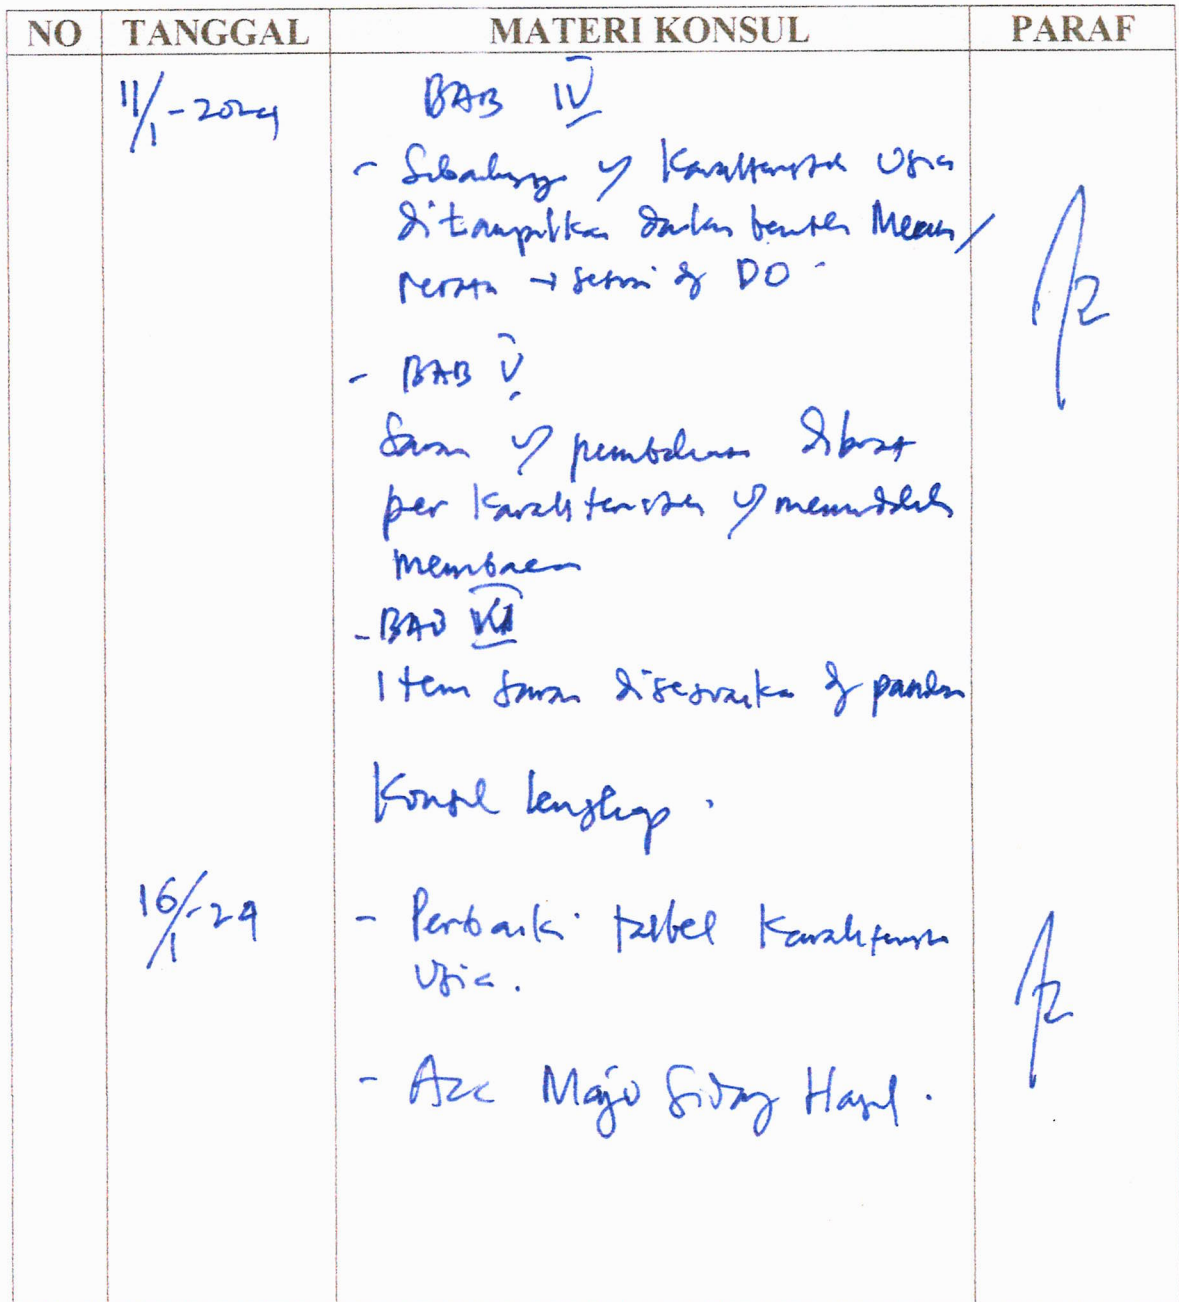 NO TANGGAL MATERI KONSUL PARAF
11/1-2024 BAB IV
- Sebaiknya u/ Karakteristik Usia
ditampilkan dalam bentuk Mean/
rerata → sesuai dg DO.
- BAB V
Saran u/ pembahasan dibuat
per karakteristik u/ memudahkan
membaca
- BAB VI
Item saran disesuaikan dg panduan
Konsul lengkap.
16/1-24 - Perbaiki tabel Karakteristik
Usia.
- Acc Maju Sidang Hasil.